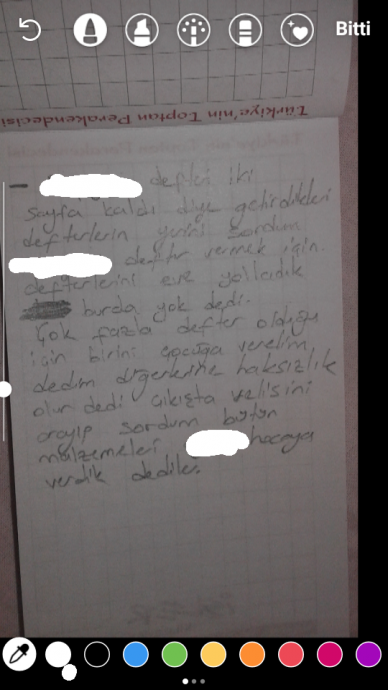 Bitti
Türkiye'nin Toptan Perakendecisi
- defteri iki
sayfa kaldı diye getirdikleri
defterlerin yerini sordum
defter vermek için.
defterlerini eve yolladık
burda yok dedi.
Çok fazla defter olduğu
için birini çocuğa verelim
dedim diğerlerine haksızlık
olur dedi çıkışta velisini
arayıp sordum bütün
malzemeleri hocaya
verdik dediler.